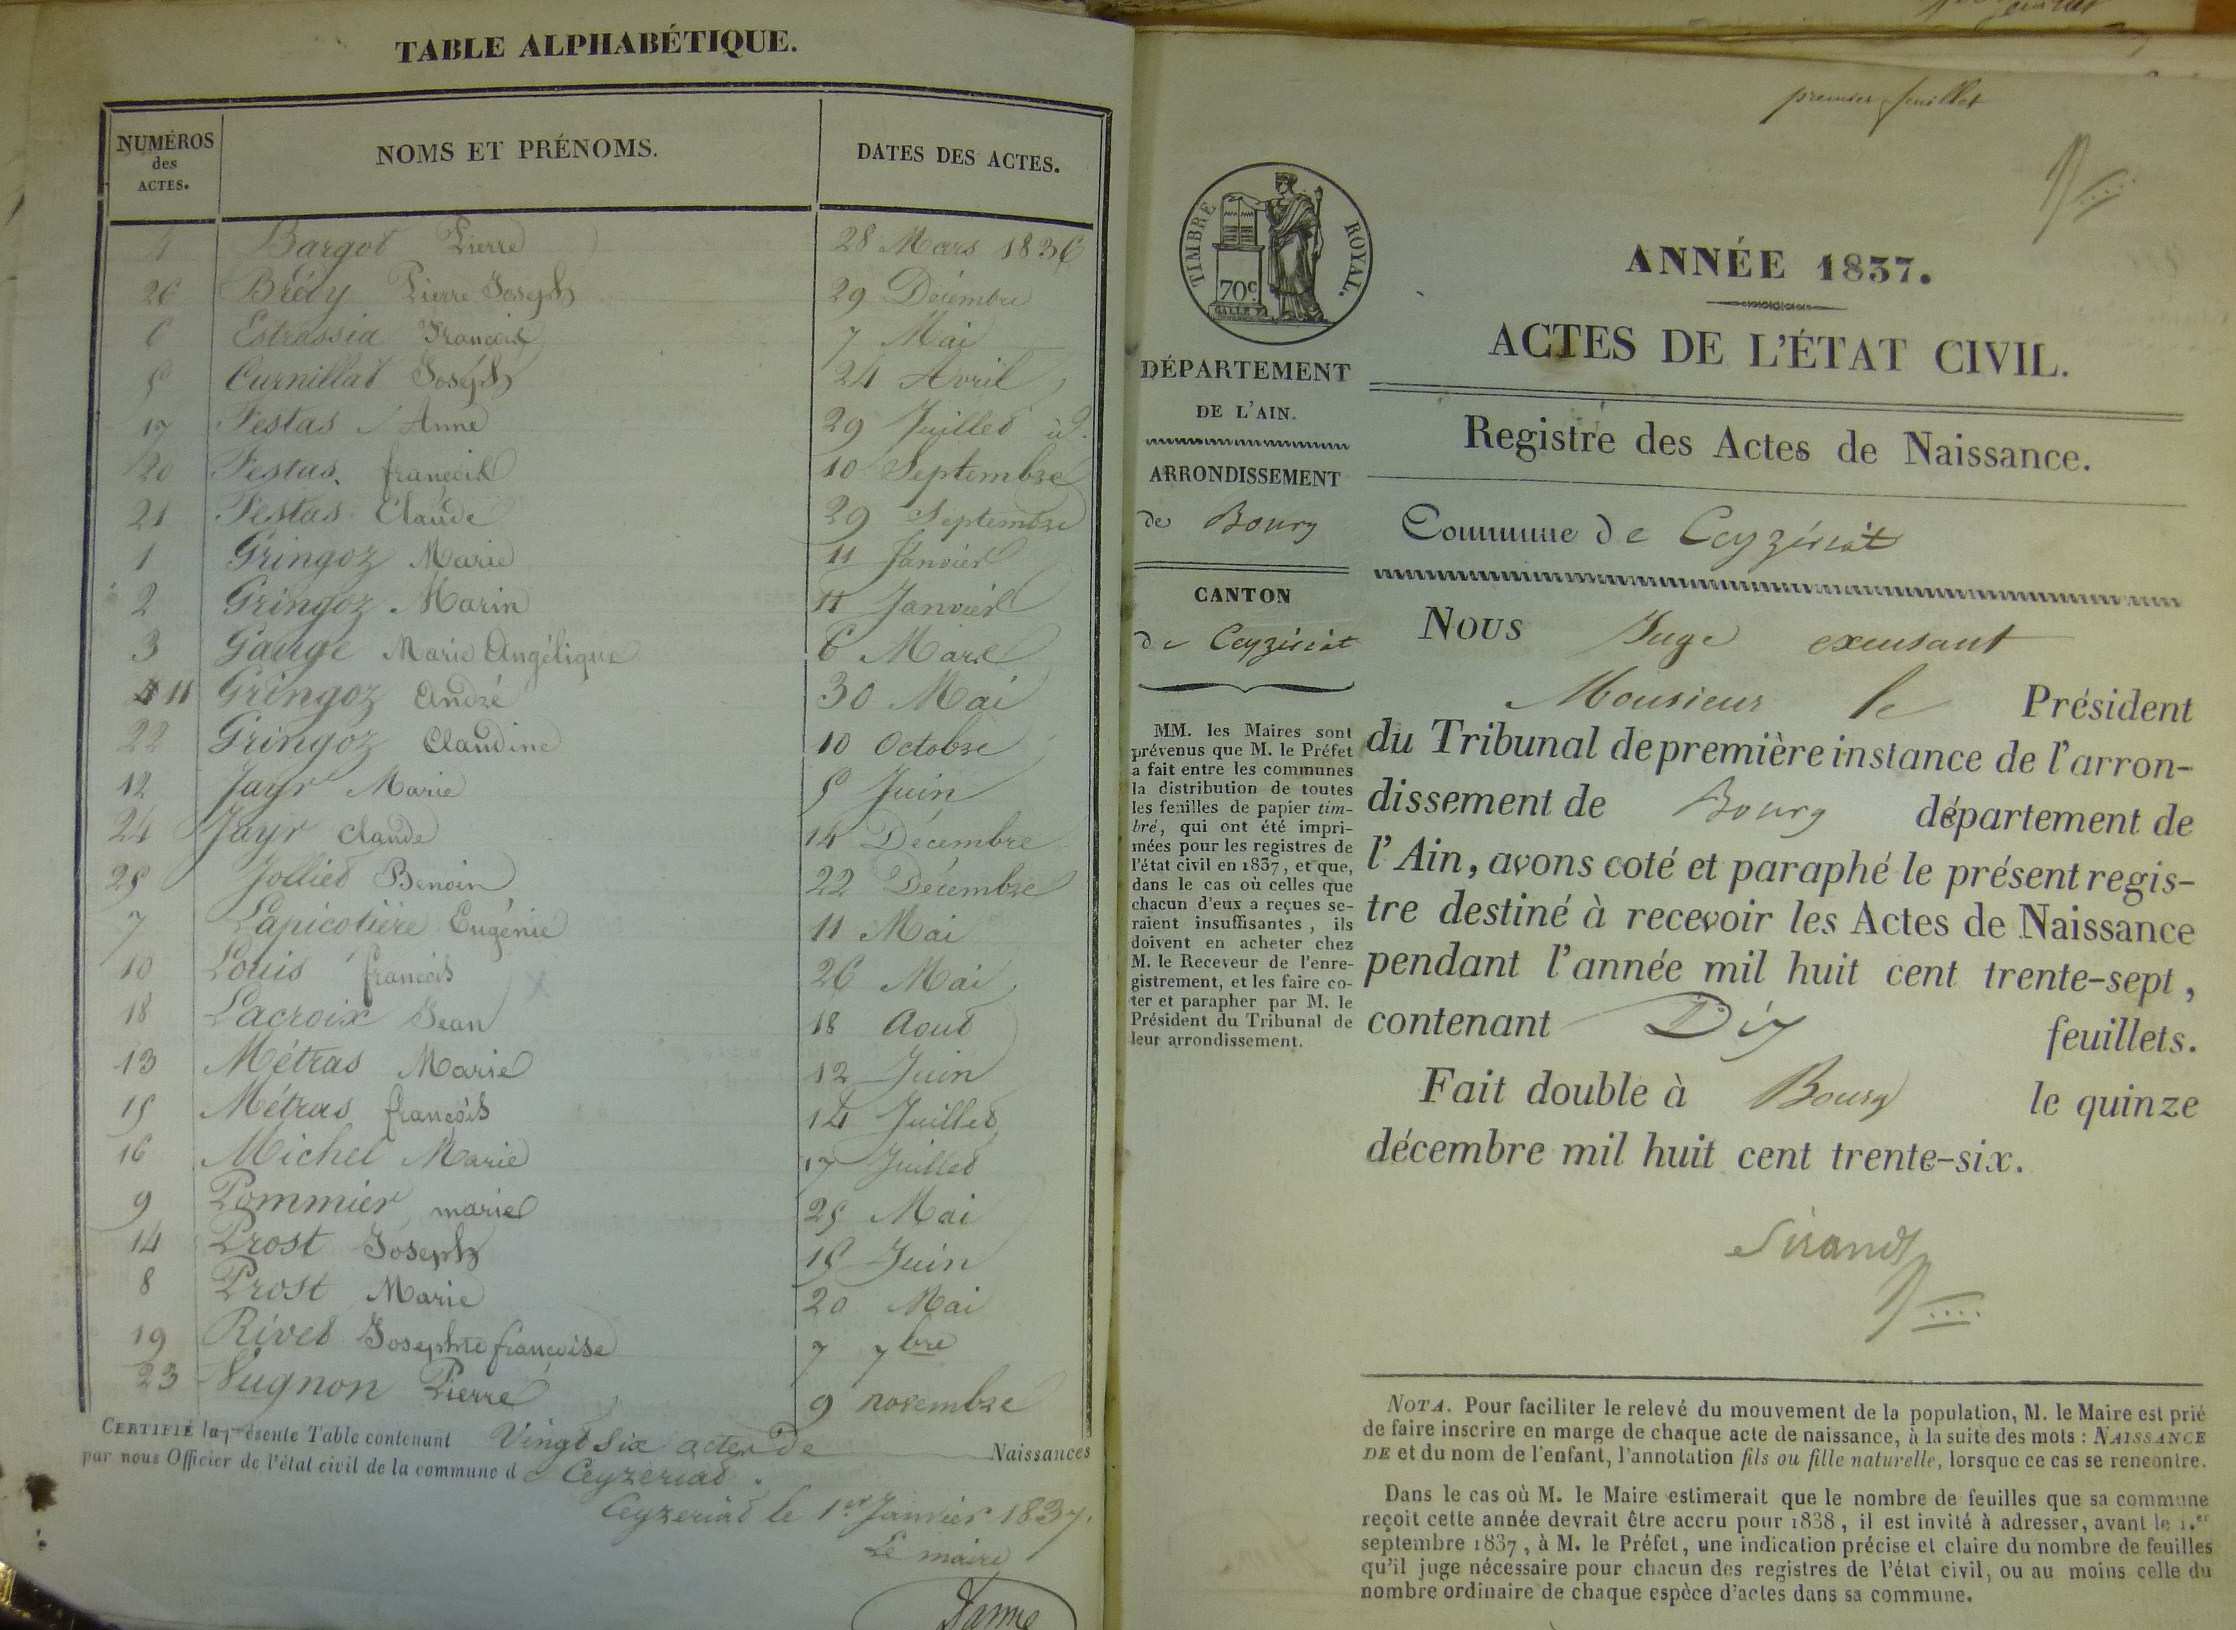 TABLE ALPHABÉTIQUE.
NUMÉROS des ACTES. NOMS ET PRÉNOMS. DATES DES ACTES.
4 Bargot Pierre 28 Mars 1836
26 Brévy Pierre Joseph 29 Décembre
6 Estrassia François 7 Mai
5 Curnillat Joséph 24 Avril
17 Festas Anne 29 Juillet
20 Festas françois 10 Septembre
21 Festas Claude 29 Septembre
1 Gringoz Marie 11 Janvier
2 Gringoz Marin 11 Janvier
3 Gauge Marie Angélique 6 Mars
11 Gringoz André 30 Mai
22 Gringoz Claudine 10 Octobre
12 Jayr Marie 5 Juin
24 Jayr Claude 14 Décembre
25 Jolliet Benoin 22 Décembre
7 Lapicotière Eugénie 11 Mai
10 Louis françois 26 Mai
18 Lacroix Jean 18 Aout
13 Métras Marie 12 Juin
15 Métras françois 14 Juillet
16 Michel Marie 17 Juillet
9 Pommier marie 25 Mai
14 Prost Joseph 15 Juin
8 Prost Marie 20 Mai
19 Rivet Josephte françoise 7 7bre
23 Vugnon Pierre 9 novembre
CERTIFIÉ la présente Table contenant Vingt six actes De Naissances
par nous Officier de l'état civil de la commune de Ceyzeriat.
Ceyzeriat le 1er Janvier 1837.
Le maire
premier feuillet
TIMBRE ROYAL.
70c
ANNÉE 1837.
ACTES DE L'ÉTAT CIVIL.
Registre des Actes de Naissance.
Commune de Ceyzériat
DÉPARTEMENT
DE L'AIN.
ARRONDISSEMENT
de Bourg
CANTON
de Ceyzériat
MM. les Maires sont
prévenus que M. le Préfet
a fait entre les communes
la distribution de toutes
les feuilles de papier tim-
bré, qui ont été impri-
mées pour les registres de
l'état civil en 1837, et que,
dans le cas où celles que
chacun d'eux a reçues se-
raient insuffisantes, ils
doivent en acheter chez
M. le Receveur de l'enre-
gistrement, et les faire co-
ter et parapher par M. le
Président du Tribunal de
leur arrondissement.
Nous Juge excusant
Monsieur le Président
du Tribunal de première instance de l'arron-
dissement de Bourg département de
l'Ain, avons coté et paraphé le présent regis-
tre destiné à recevoir les Actes de Naissance
pendant l'année mil huit cent trente-sept,
contenant Dix feuillets.
Fait double à Bourg le quinze
décembre mil huit cent trente-six.
Sirand
NOTA. Pour faciliter le relevé du mouvement de la population, M. le Maire est prié
de faire inscrire en marge de chaque acte de naissance, à la suite des mots : NAISSANCE
DE et du nom de l'enfant, l'annotation fils ou fille naturelle, lorsque ce cas se rencontre.
Dans le cas où M. le Maire estimerait que le nombre de feuilles que sa commune
reçoit cette année devrait être accru pour 1838, il est invité à adresser, avant le 1.er
septembre 1837, à M. le Préfet, une indication précise et claire du nombre de feuilles
qu'il juge nécessaire pour chacun des registres de l'état civil, ou au moins celle du
nombre ordinaire de chaque espèce d'actes dans sa commune.